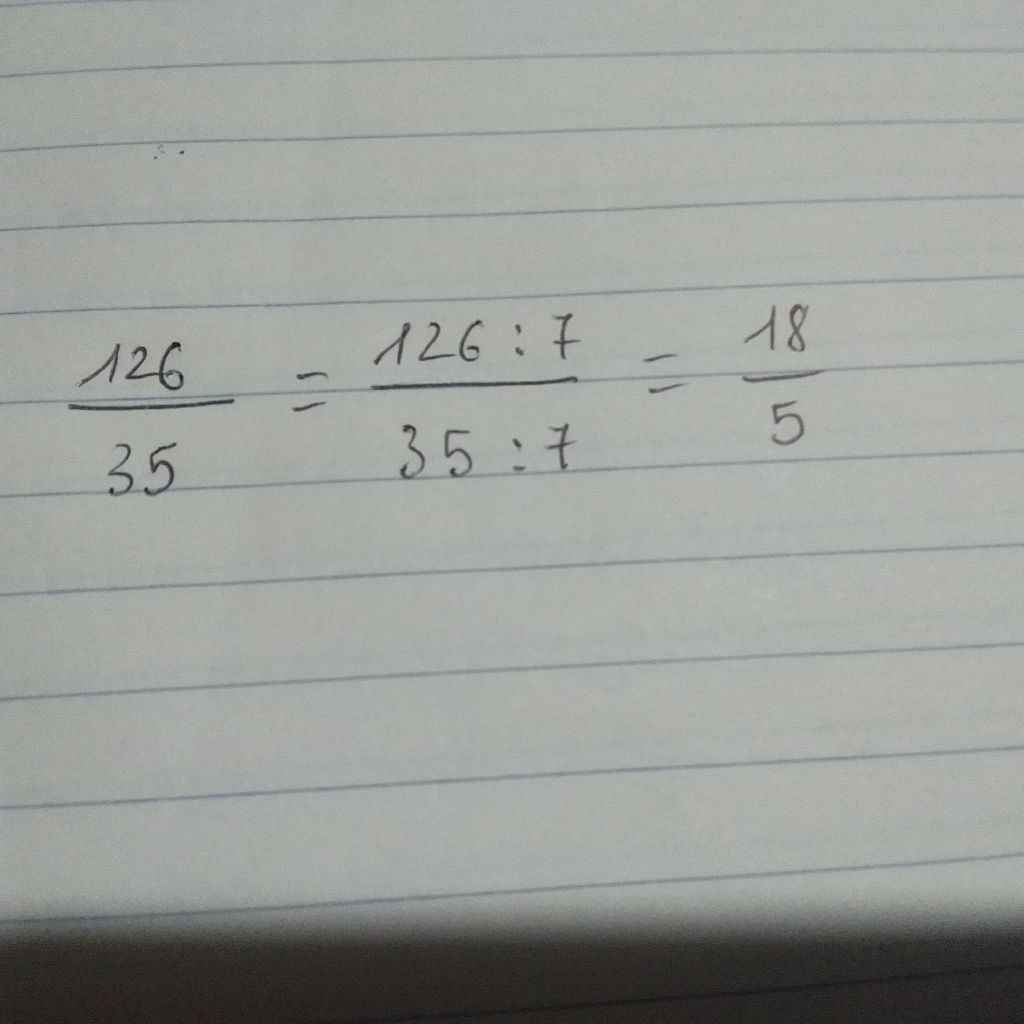 126/35 = 126:7/35:7 = 18/5